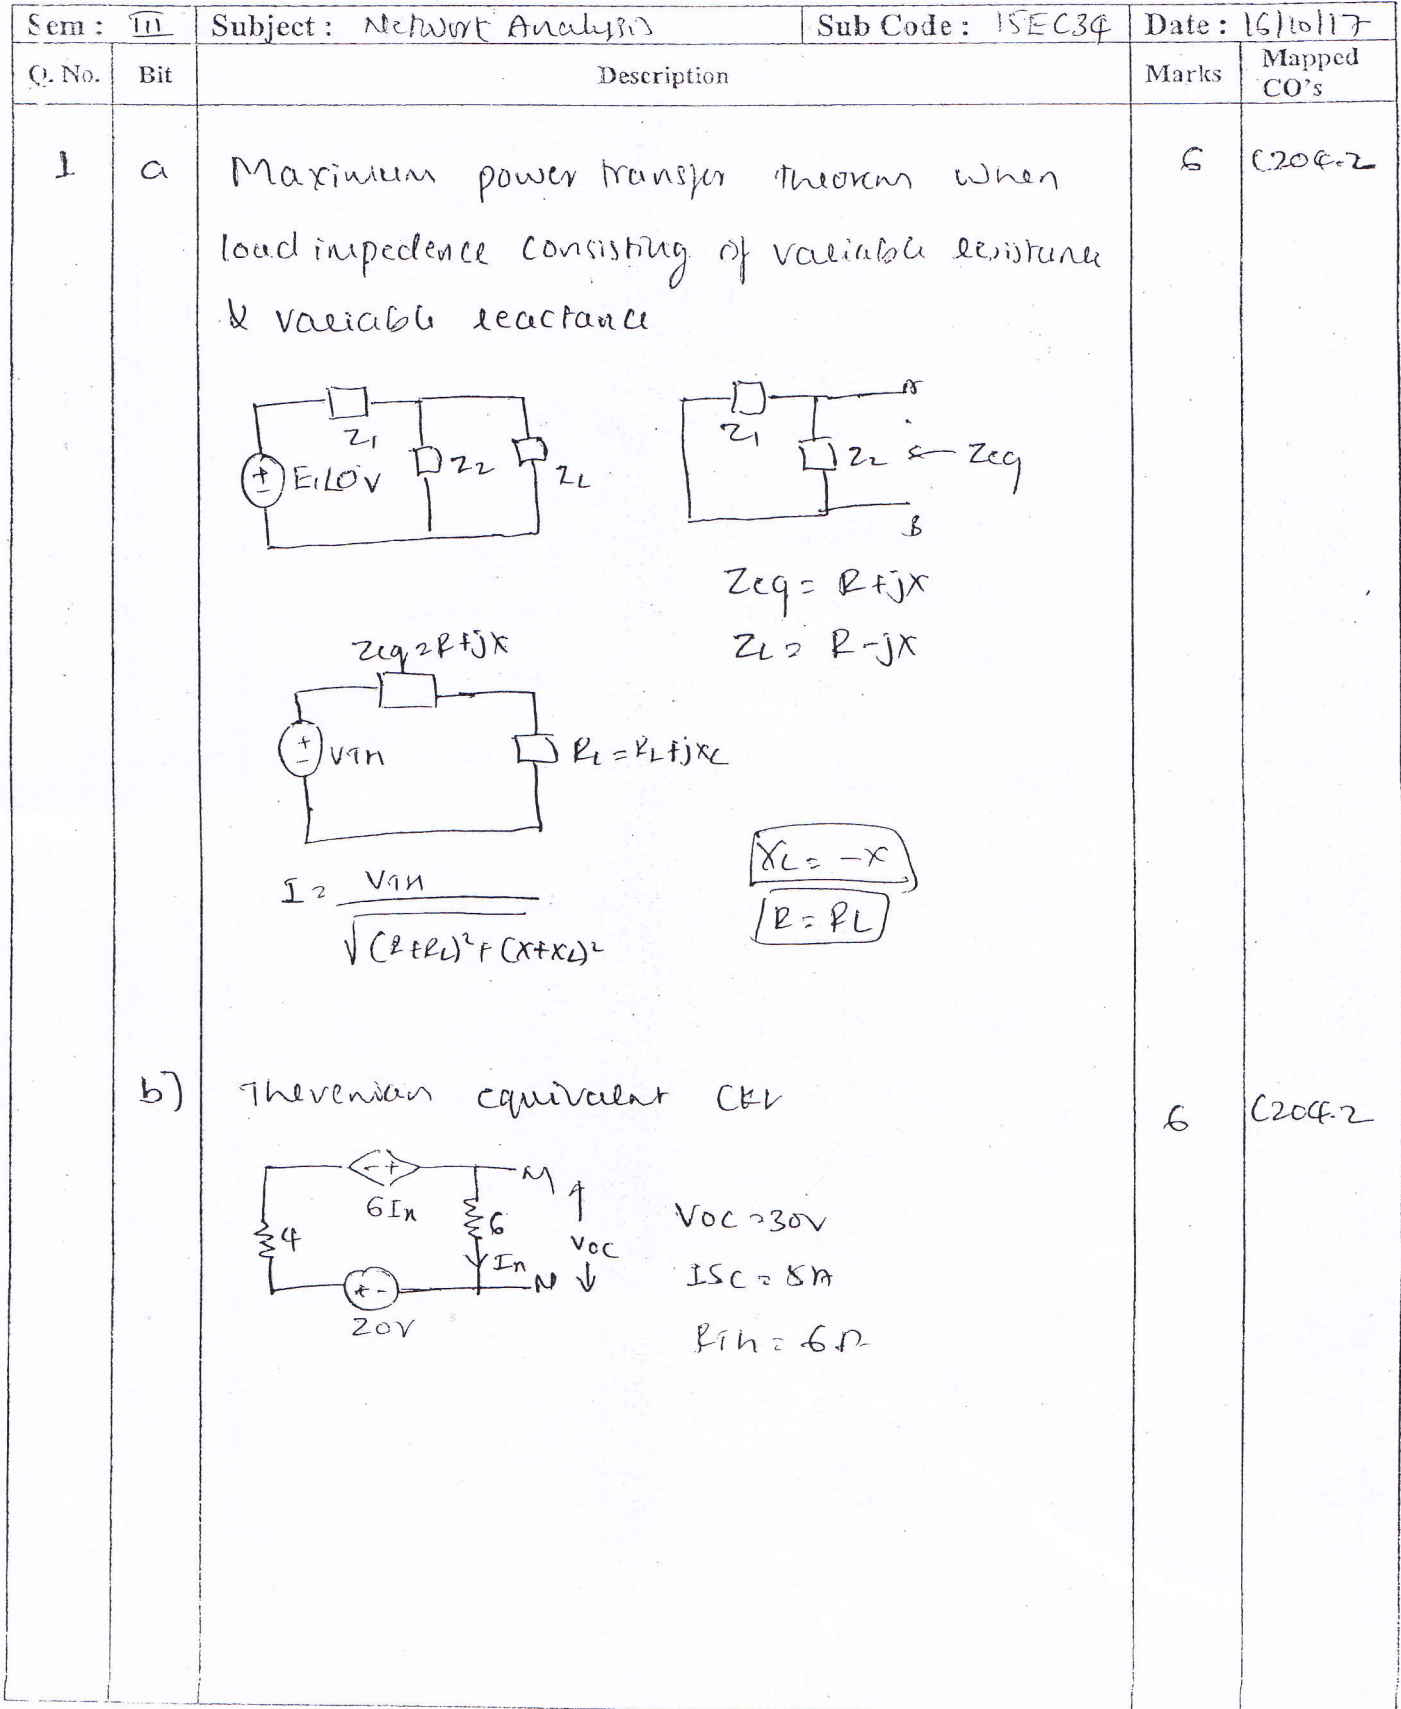 Sem : III Subject : Network Analysis Sub Code : 15EC34 Date : 16/10/17
Q. No. Bit Description Marks Mapped CO's
1 a Maximum power transfer theorem when 6 C204.2
load impedence consisting of variable resistance
& variable reactance
Z1 Z2 ZL E1∠0°V
Z1 Z2 ← Zeq A B
Zeq = R+jX
ZL = R-jX
Zeq = R+jX
Vth RL = RL+jXL
XL = -X
R = RL
I = Vth / √(R+RL)²+(X+XL)²
b) Thevenian equivalent CKt 6 C204.2
- + M
6Ix 6 ↑
4 Voc Voc = 30V
Ix N ↓ Isc = 5A
+ -
20V Rth = 6Ω